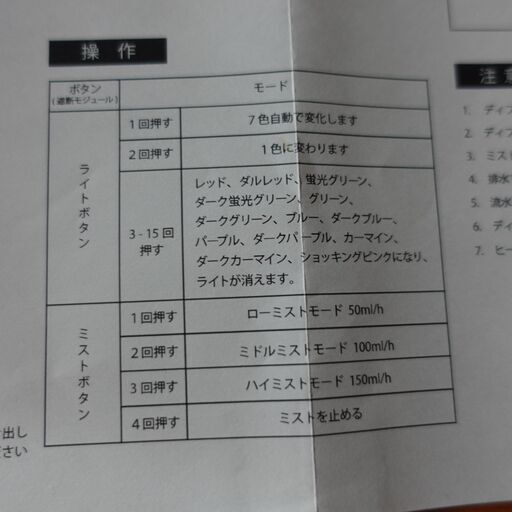 操作
ボタン
(遮断モジュール)
モード
ライトボタン
1回押す
7色自動で変化します
2回押す
1色に変わります
3-15回
押す
レッド、ダルレッド、蛍光グリーン、
ダーク蛍光グリーン、グリーン、
ダークグリーン、ブルー、ダークブルー、
パープル、ダークパープル、カーマイン、
ダークカーマイン、ショッキングピンクになり、
ライトが消えます。
ミストボタン
1回押す
ローミストモード 50ml/h
2回押す
ミドルミストモード 100ml/h
3回押す
ハイミストモード 150ml/h
4回押す
ミストを止める
出し
ださい
注意
1. ディフ
2. ディフ
3. ミスト
4. 排水
5. 流水
6. ディ
7. ヒー